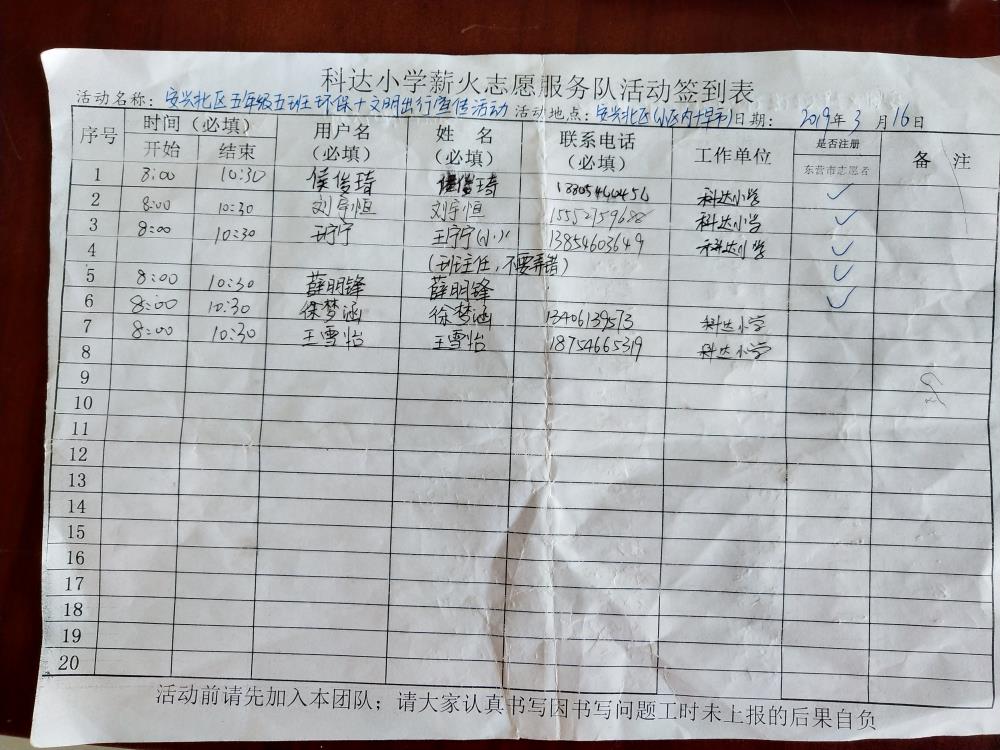 科达小学薪火志愿服务队活动签到表
活动名称：安兴北区五年级五班环保+文明出行宣传活动 活动地点：安兴北区(小区内+早市) 日期： 2019年 3 月 16 日
序号 时间（必填） 用户名（必填） 姓 名（必填） 联系电话（必填） 工作单位 是否注册东营市志愿者 备 注
开始 结束
1 8:00 10:30 侯俊琦 侯俊琦 13305460456 科达小学 ✓
2 8:00 10:30 刘宇恒 刘宇恒 15552159688 科达小学 ✓
3 8:00 10:30 王宁宁 13854603649 科达小学 ✓
4 (班主任，不要弄错) ✓
5 8:00 10:30 薛明锋 薛明锋 ✓
6 8:00 10:30 徐梦涵 徐梦涵 13406139573 科达小学
7 8:00 10:30 王雪怡 王雪怡 18754665319 科达小学
8
9
10
11
12
13
14
15
16
17
18
19
20
活动前请先加入本团队；请大家认真书写因书写问题工时未上报的后果自负